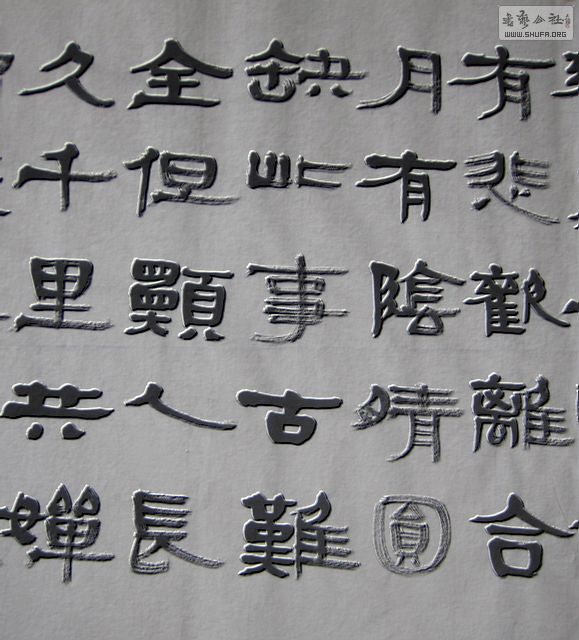 書藝公社
WWW.SHUFA.ORG
有悲歡離合
月有陰晴圓
缺此事古難
全但願人長
久千里共嬋